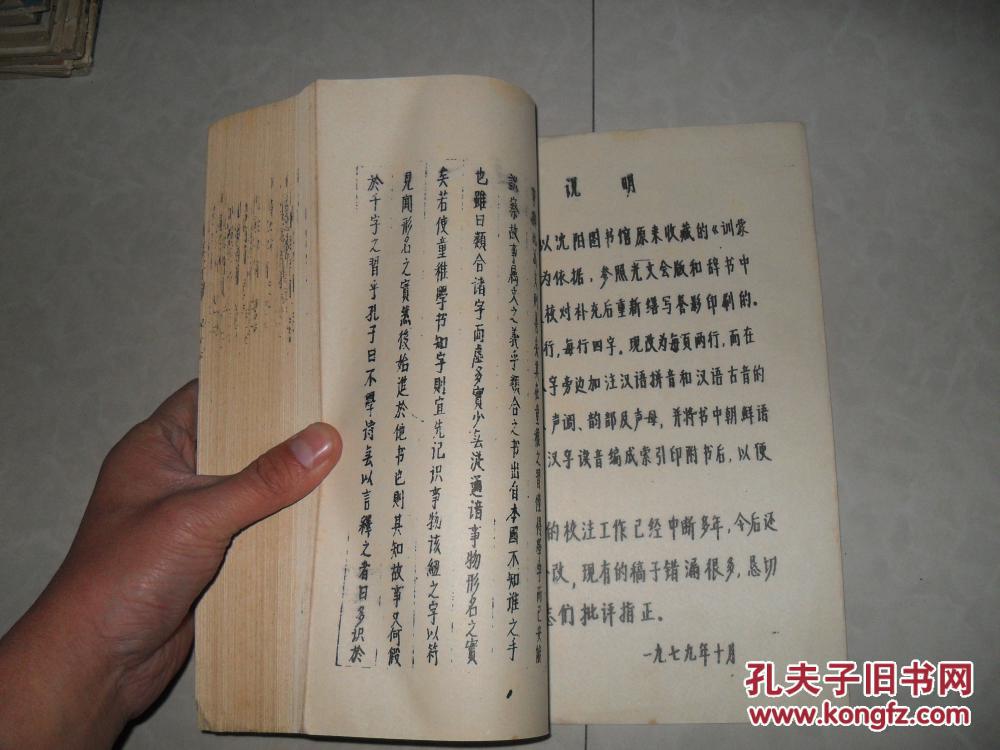 察故事属文之义乎類合之书出自本國不知誰之手
也雖曰類合諸字而虛多實少無從通諳事物形名之實
矣若使童稚學书知字則宜先记识事物该紐之字以符
見聞形名之實然後始進於他书也則其知故事又何假
於千字之習乎孔子曰不學诗無以言釋之者曰多识於
说 明
以沈阳图书馆原来收藏的《训蒙
为依据，参照光文会版和辞书中
校对补充后重新缮写誊影印刷的。
行，每行四字。现改为每页两行，而在
字旁边加注汉语拼音和汉语古音的
声调、韵部及声母，并将书中朝鲜语
汉字读音编成索引印附书后，以便
的校注工作已经中断多年，今后还
改，现有的稿子错漏很多，恳切
志们批评指正。
一九七九年十月
孔夫子旧书网
www.kongfz.com